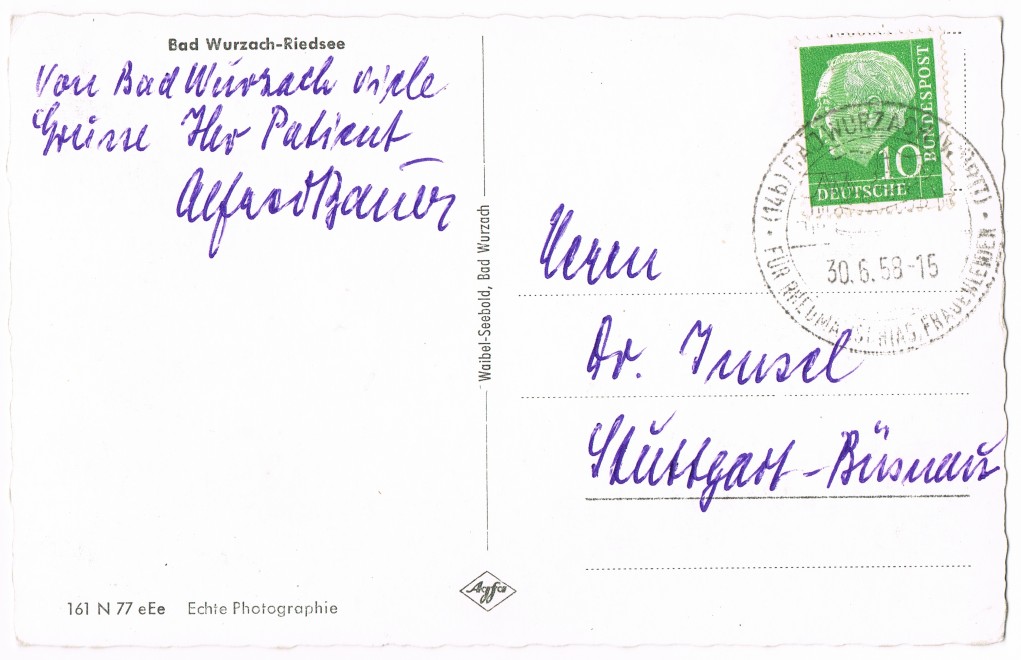 Bad Wurzach-Riedsee
Von Bad Wurzach viele
Grüsse Ihr Patient
Alfred Bauer
Waibel-Seebold, Bad Wurzach
10
DEUTSCHE
BUNDESPOST
(14b) BAD WURZACH
30.6.58-15
FÜR RHEUMA, ISCHIAS, FRAUENLEIDEN
Herrn
Dr. Imsel
Stuttgart-Büsnau
Agfa
161 N 77 eEe Echte Photographie